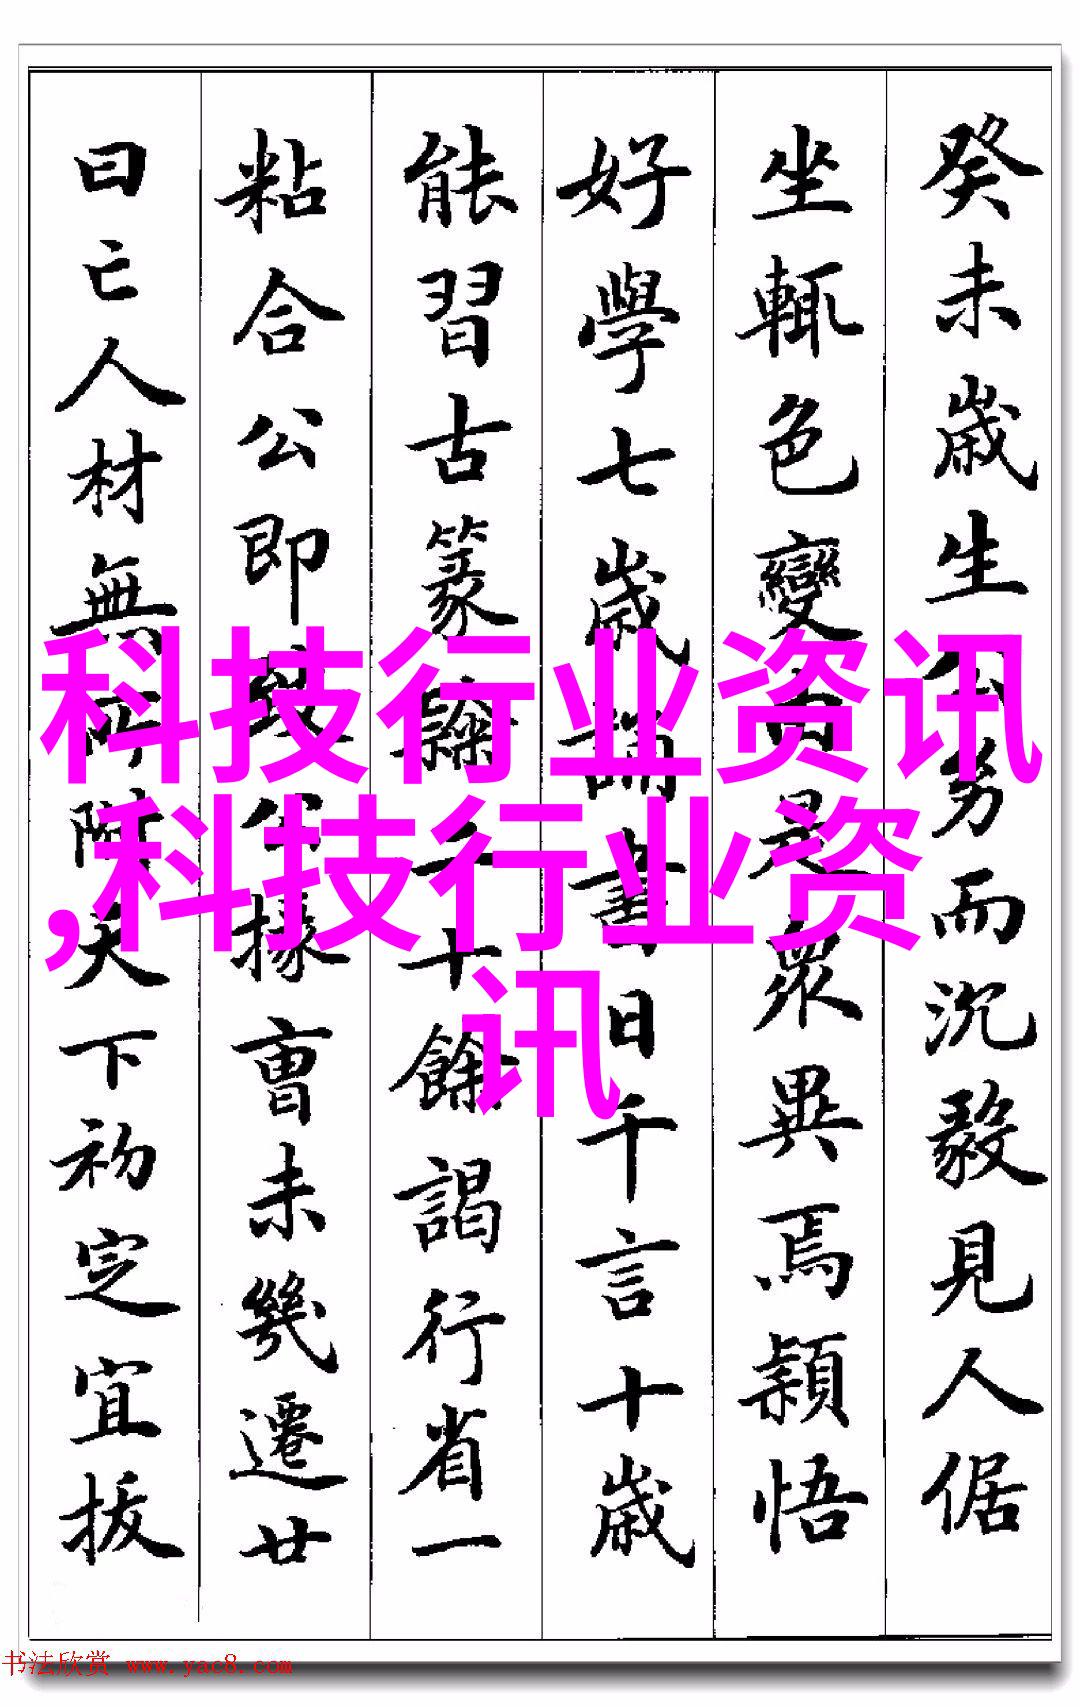 癸未歲生公幼而沉毅見人倨
坐輒色變由是眾異焉穎悟
好學七歲誦書日千言十歲
能習古篆隸二十餘謁行省一
粘合公即致公掾曹未幾遷廿
曰亡人材無所附天下初定宜拔
科技行业资讯
,科技行业资
讯
书法欣赏 www.yac8.com